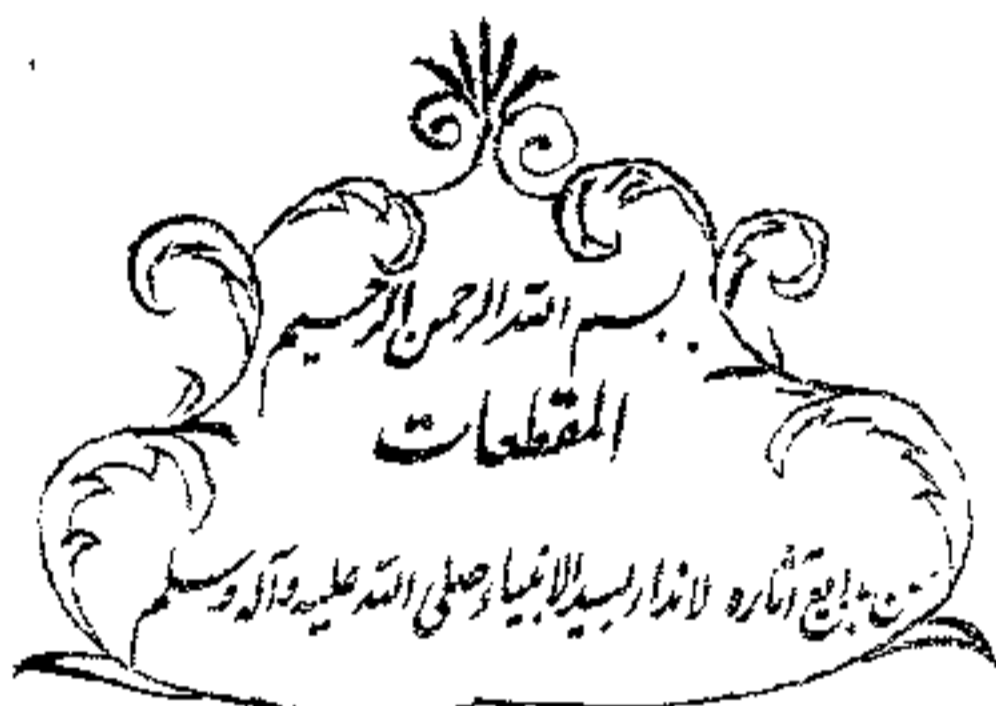 بسم الله الرحمن الرحيم
المقطعات
من بدايع آثاره لانذار لسيد الانبياء صلى الله عليه وآله وسلم